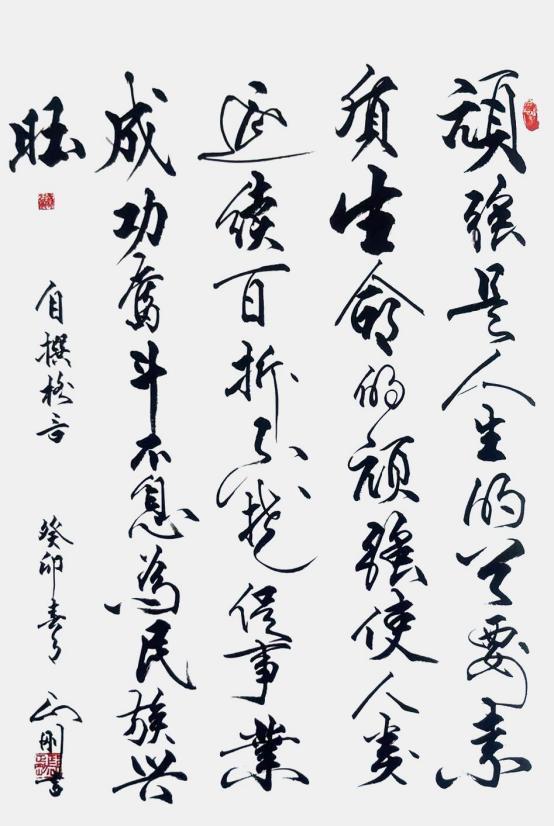 頑強是人生的要素
質生命的頑強使人类
延续百折不挠促事業
成功奮斗不息為民族兴
旺
自撰格言 癸卯春月 刚書